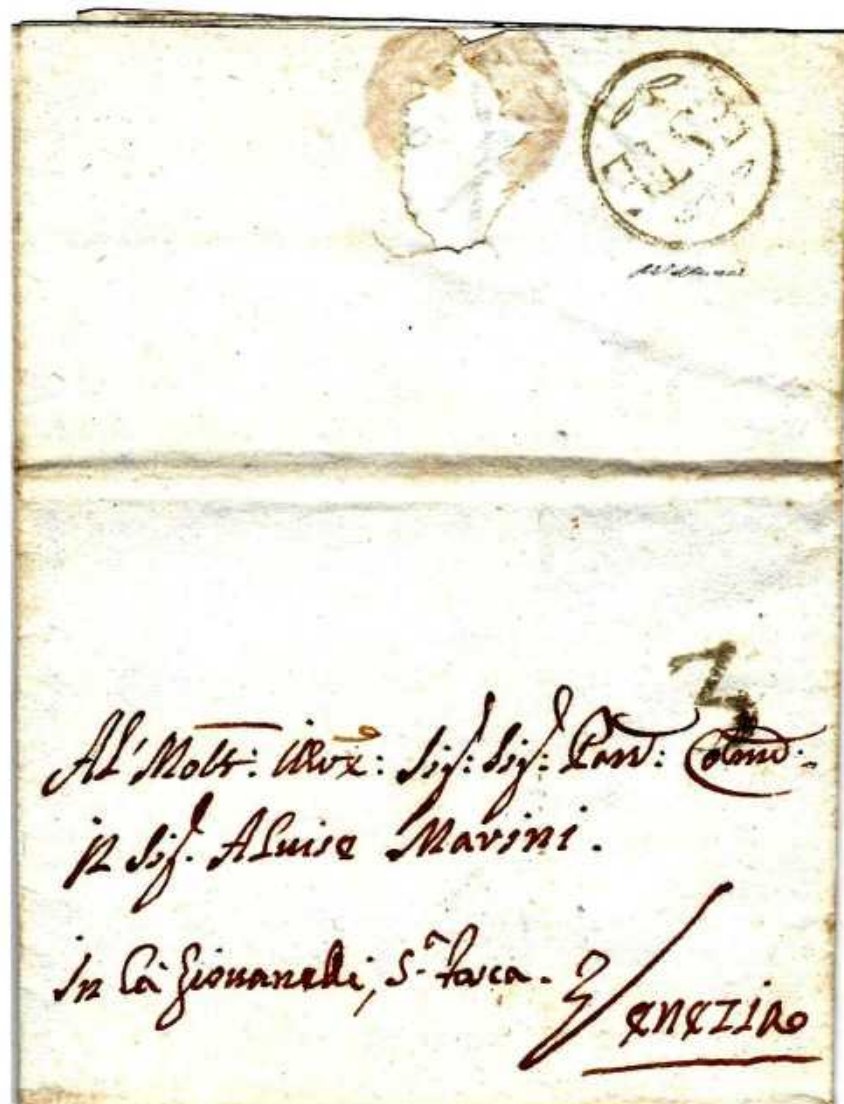 ESTE
3
Al' Molt: Illre: Sigr: Sigr: Pron: Colmo:
Il Sigr. Aluise Marini.
In Cà Giovanelli, S.a Fosca. Venezia